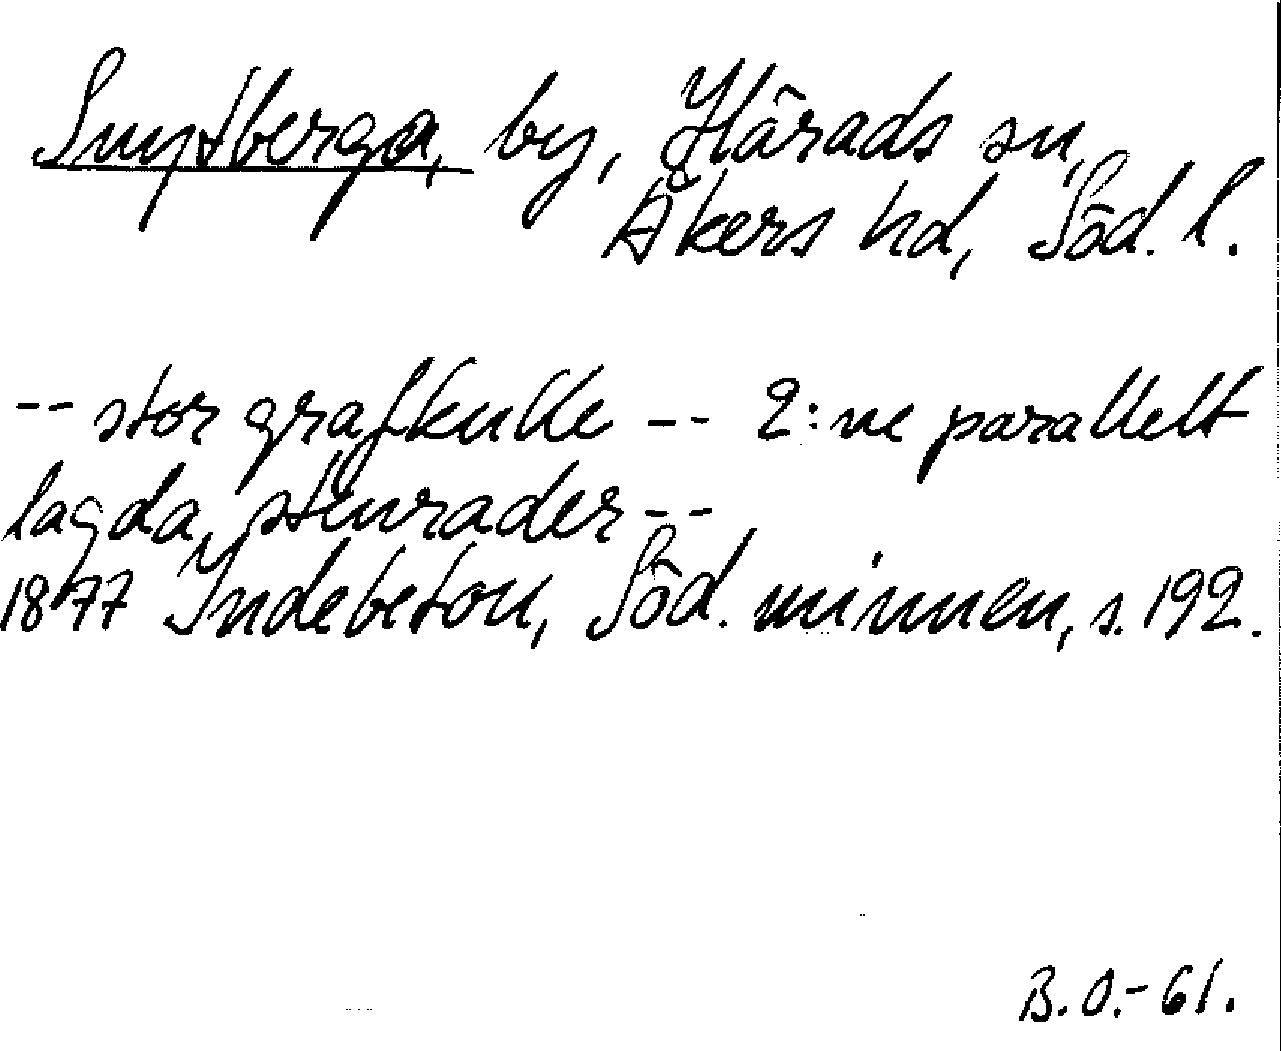 Snytberga, by, Härads sn,
Åkers hd, Söd. l.
-- stor grafkulle -- 2:ne parallelt
lagda stenrader --
1877 Indebetou, Söd. minnen, s. 192.
B.O.-61.